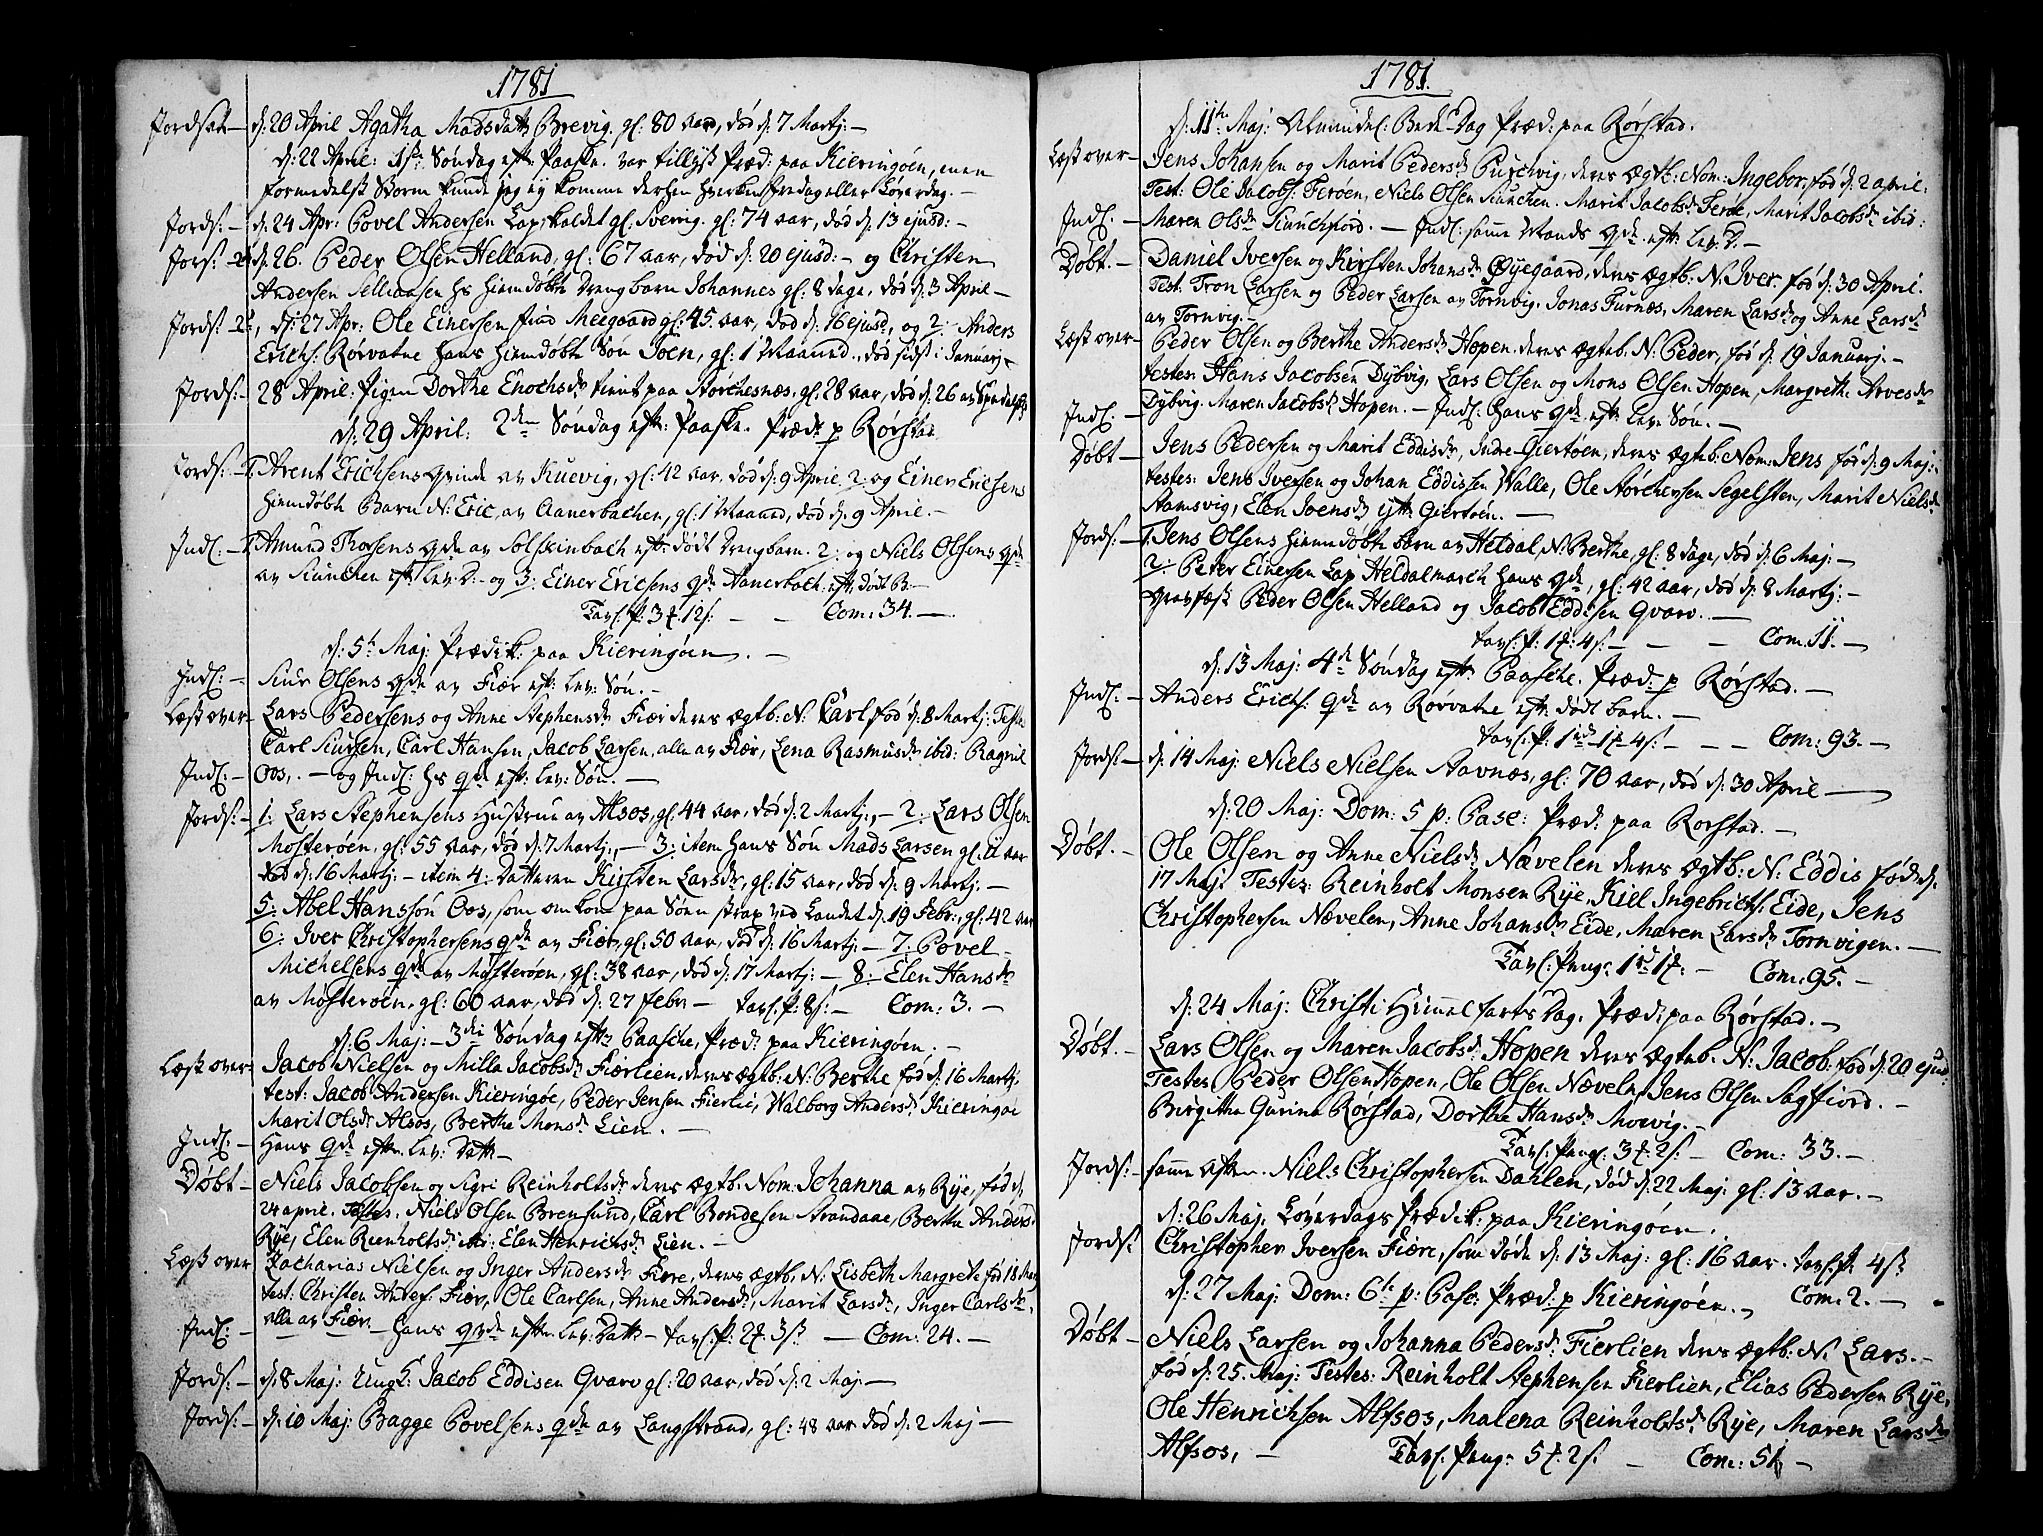 1781
Jordsat – d: 20 April Agatha Madsdatt Brevig, gl: 80 aar, død d: 7 Martj: –
d: 22 April: 1ste Søndag efter Paaske. var tillyst Præd: paa Kieringøen, men
formedelst Storm kunde jeg ej komme derhen hverken Fredag eller Løverdag. –
Jords: – d: 24 Apr: Povel Andersen Lap, kaldet gl. Sverrig. gl: 74 aar, død d: 13 ejusd: –
Jords: 2 d: 26. Peder Olsen Helland, gl: 67 aar, død d: 20 ejusd: – og Christen
Andersen hs hiemdøbte Drengbarn Johannes gl: 8 dage, død d: 3 April –
Jords: 2, d: 27 Apr: Ole Einersen Meegaard gl: 45 aar, død d: 16 ejusd, og 2: Anders
Erichs: Rørvatne hans hiemdøbte Søn Joen, gl: 1 Maaned, død sidst i Januarj –
Jords: – 28 April. Pigen Dorthe Enochsdr tient paa Storchesnæs, gl: 28 aar, død d: 26 av
d: 29 April: 2den Søndag eft: Paaske. Præd: p Rørstad.
Jords: – 1. Arent Erichsens qvinde av Kuevig, gl: 42 aar, død d: 9 April, 2: og Einer Ericsens
hiemdøbte Barn N: Eric, av Aanerbachen, gl: 1 Maaned, død d: 9 April. –
Indl: – 1. Amund Thorsens qde av Solskinbach eft: dødt Drengbarn. 2: og Niels Olsens qde
av Siunchen eft: lev: D: – og 3: Einer Ericsens qde Aanerbach: eft: dødt B: –
Tavl: P: 3 ort 12 s: – – Com: 34. –
d: 5t Maj: Prædik: paa Kieringøen. –
Indl: – Siur Olsens qde av Fiær eft: lev: Søn. –
Læst over – Lars Pedersens og Anne Stephensdr Fiær deres ægtb: N: Carl fød d: 8 Martj: Testes
Carl Siursen, Carl Hansen, Jacob Larsen, alle av Fiær, Lena Rasmusdr ibid: Ragnil
Indl: – Oos, – og Indl: hs qde eft: lev: Søn. –
Jords: – 1: Lars Stephensens Hustrue av Alsos, gl: 44 aar, død d: 2 Martj:, – 2: Lars Olsen
Mosterøen, gl: 55 aar, død d: 7 Martj:, – 3: item hans Søn Mads Larsen gl: 11 aar
død d: 16 Martj: – item 4: Datteren Kirsten Larsdr, gl: 15 aar, død d: 9 Martj: –
5: Abel Hanssøn Oos, som omkom paa Søen strax ved Landet d: 19 Febr:, gl: 42 aar
6: Iver Christophersens qde av Fiær, gl: 50 aar, død d: 16 Martj: – 7: Povel
Michelsens qde av Mosterøen, gl: 38 aar, død d: 17 Martj: – 8: Elen Hansdr
av Mosterøen, gl: 60 aar, død d: 27 febr: – Tavl: P: 8 s: – Com: 3. –
d: 6 Maj: – 3die Søndag efter Paasche, Præd: paa Kieringøen. –
Læst over – Jacob Nielsen og Milla Jacobsdr Fiærlien, deres ægtb: N: Berthe fød d: 16 Martj,
test: Jacob Andersen Kieringøe, Peder Jensen Fierlie, Walborg Andersdr Kieringøe
Marit Olsdr Alsos, Berthe Monsdr Lien. –
Indl: – Hans qde efter lev: Datt –
Døbt – Niels Jacobsen og Sigri Reinholtsdr deres ægtb: Nom: Johanna av Rije, fød d:
24 april. Testes. Niels Olsen Brensund, Carl Bondesen Strandaae, Berthe Andersd:
Rije, Elen Reinholtsdr ibid: Elen Henrichsdr Lien. –
Læst over Zacharias Nielsen og Inger Andersdr Fiære, deres ægtb: N: Lisbeth Margrete fød 18 Mar
test: Christen Anders: Fiær, Ole Carlsen, Anne Andersdr, Marit Larsdr, Inger Carlsdr,
Indl: – alle av Fiær – Hans qvde efter lev: Datt – Tavl: P: 2 ort 3 s – Com: 24. –
Jords: – d: 8 Maj: Ungk: Jacob Eddisen Qvarv gl: 20 aar, død d: 2 Maj –
Jords: – d: 10 Maj: Bagge Povelsens qde av Langstrand, gl: 48 aar død d: 2 Maj –
1781.
d: 11te Maj: Almindel: Bede-Dag Præd: paa Rørstad.
Læst over – Jens Johansen og Marit Pedersdr deres ægtb: Nom: Ingebor, fød d: 2 april:
Test: Ole Jacobs: Feröen, Niels Olsen Siunchen. Marit Jacobsdr Feröe, Marit Jacobsdr ibid:
Indl: – Maren Olsdr Siunchfiord. – Indl: samme Mands qde eft: lev: D. –
Døbt. – Daniel Iversen og Kirsten Johansdr Øyegaard, deres ægtb: N: Iver. fød d: 30 April.
Test: Tron Larsen og Peder Larsen av Tornvig. Jonas Furnæs, Maren Larsdr og Anne Larsdr
av Tornvig. –
Læst over – Peder Olsen og Berthe Andersdr Hopen, deres ægteb: N: Peder, fød d: 19 Januarj. –
testes: Hans Jacobsen Dybvig, Lars Olsen og Mons Olsen Hopen, Margrethe Arvesdr
Indl: – Dybvig. Maren Jacobsdr Hopen. – Indl: Hans qde eft: lev: Søn. –
Døbt – Jens Pedersen og Marit Eddisdr, Indre-Giertøen, deres ægtb: Nom: Jens fød d: 9 Maj:
testes: Jens Iversen og Johan Eddissen Walle, Ole Storchersen Segelsten, Marit Nielsdr
Stamsvig, Elen Joensdr ytt: Giertøen. –
Jords: – 1. Jens Olsens hiemdøbte barn av Heldal, N: Berthe, gl: 8 dage, død d: 6 Maj: –
2: Peder Einersen Lap Heldalmarch Hans qde, gl: 42 aar, død d: 8 Martj: –
gravfæst Peder Olsen Helland og Jacob Eddisen Qvarv. –
Tavl: P: 1 ort: 4 s: – – – Com: 11. –
d: 13 Maj: 4de Søndag eft: Paasche. Præd: p Rørstad. –
Indl: – Anders Erichs: qde av Rørvatne eft: dødt barn. –
Tavl: P: 1 rd – 1 ort – 4 s: – – – Com: 93. –
Jords: – d: 14 Maj: Niels Nielsen Aavnæs, gl: 70 aar, død d: 30 April –
d: 20 Maj: Dom: 5 p: Pasc: Præd: paa Rørstad. –
Døbt. – Ole Olsen og Anne Nielsdr Nævelen deres ægtb: N: Eddis fød d:
17 Maj: Testes: Reinholt Monsen Rije, Kiel Ingebrichts: Eide, Jens
Christophersen Nævelen, Anne Johansdr Eide, Maren Larsdr Tornvigen. –
Tavl: Peng: 1 rd 1 ort: – Com: 95. –
d: 24 Maj: Christi Himmelfarts Dag. Præd: paa Rørstad. –
Døbt. – Lars Olsen og Maren Jacobsdr Hopen deres ægteb: N: Jacob: fød d: 20 ejusd:
Testes: Peder Olsen Hopen, Ole Olsen Næveln, Jens Olsen Sagfiord. –
Birgitha Gurina Rørstad, Dorthe Hansdr Moevig. –
Tavl: Peng: 3 ort: 2 s: – Com: 33. –
Jords: – samme aften. Niels Christophersen Dahlen, død d: 22 Maj: gl: 13 aar. –
d: 26 Maj. Løverdags Prædik: paa Kieringøen.
Jords: Christopher Iversen Fiære, som døde d: 13 Maj: gl: 16 aar. Tavl: P: 4 s
d: 27 Maj: Dom: 6te p: Pasc: Præd: p Kieringøen. – Com: 2. –
Døbt – Niels Larsen og Johanna Pedersdr Fierlien deres ægtb: N: Lars. –
fød d: 25. Maj: Testes: Reinholt Stephensen Fierlien, Elias Pedersen Rije,
Ole Henrichsen Alfsos, Malena Reinholtsdr Rije, Maren Larsdr
Alfsos, – Tavl: Peng: 5 ort: 2 s: – Com: 51 –